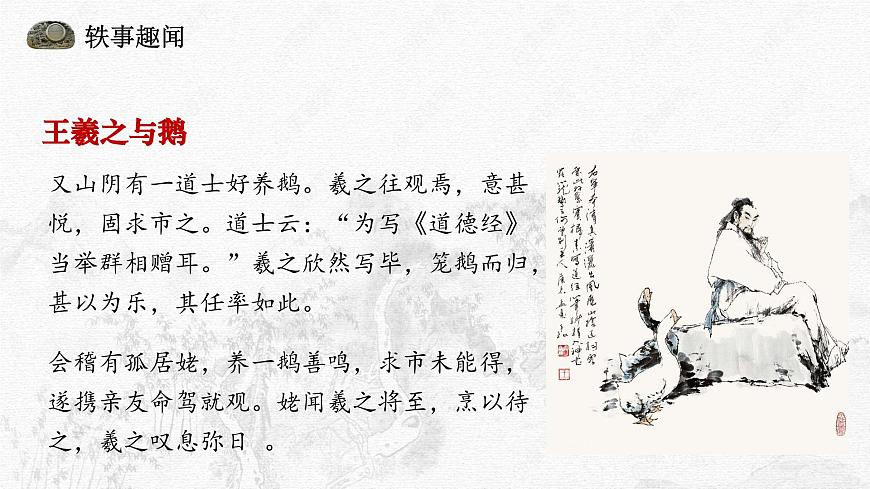 轶事趣闻
王羲之与鹅
又山阴有一道士好养鹅。羲之往观焉，意甚
悦，固求市之。道士云：“为写《道德经》
当举群相赠耳。”羲之欣然写毕，笼鹅而归，
甚以为乐，其任率如此。
会稽有孤居姥，养一鹅善鸣，求市未能得，
遂携亲友命驾就观。姥闻羲之将至，烹以待
之，羲之叹息弥日 。